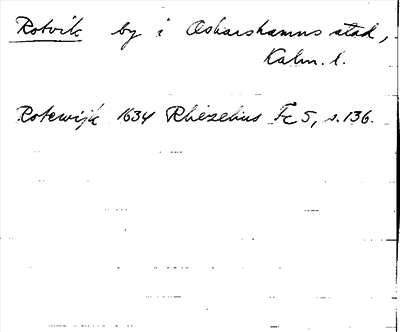 Rotvik by i Oskarshamns stad,
Kalm. l.
Rotewijk 1634 Rhezelius Fc 5, s. 136.